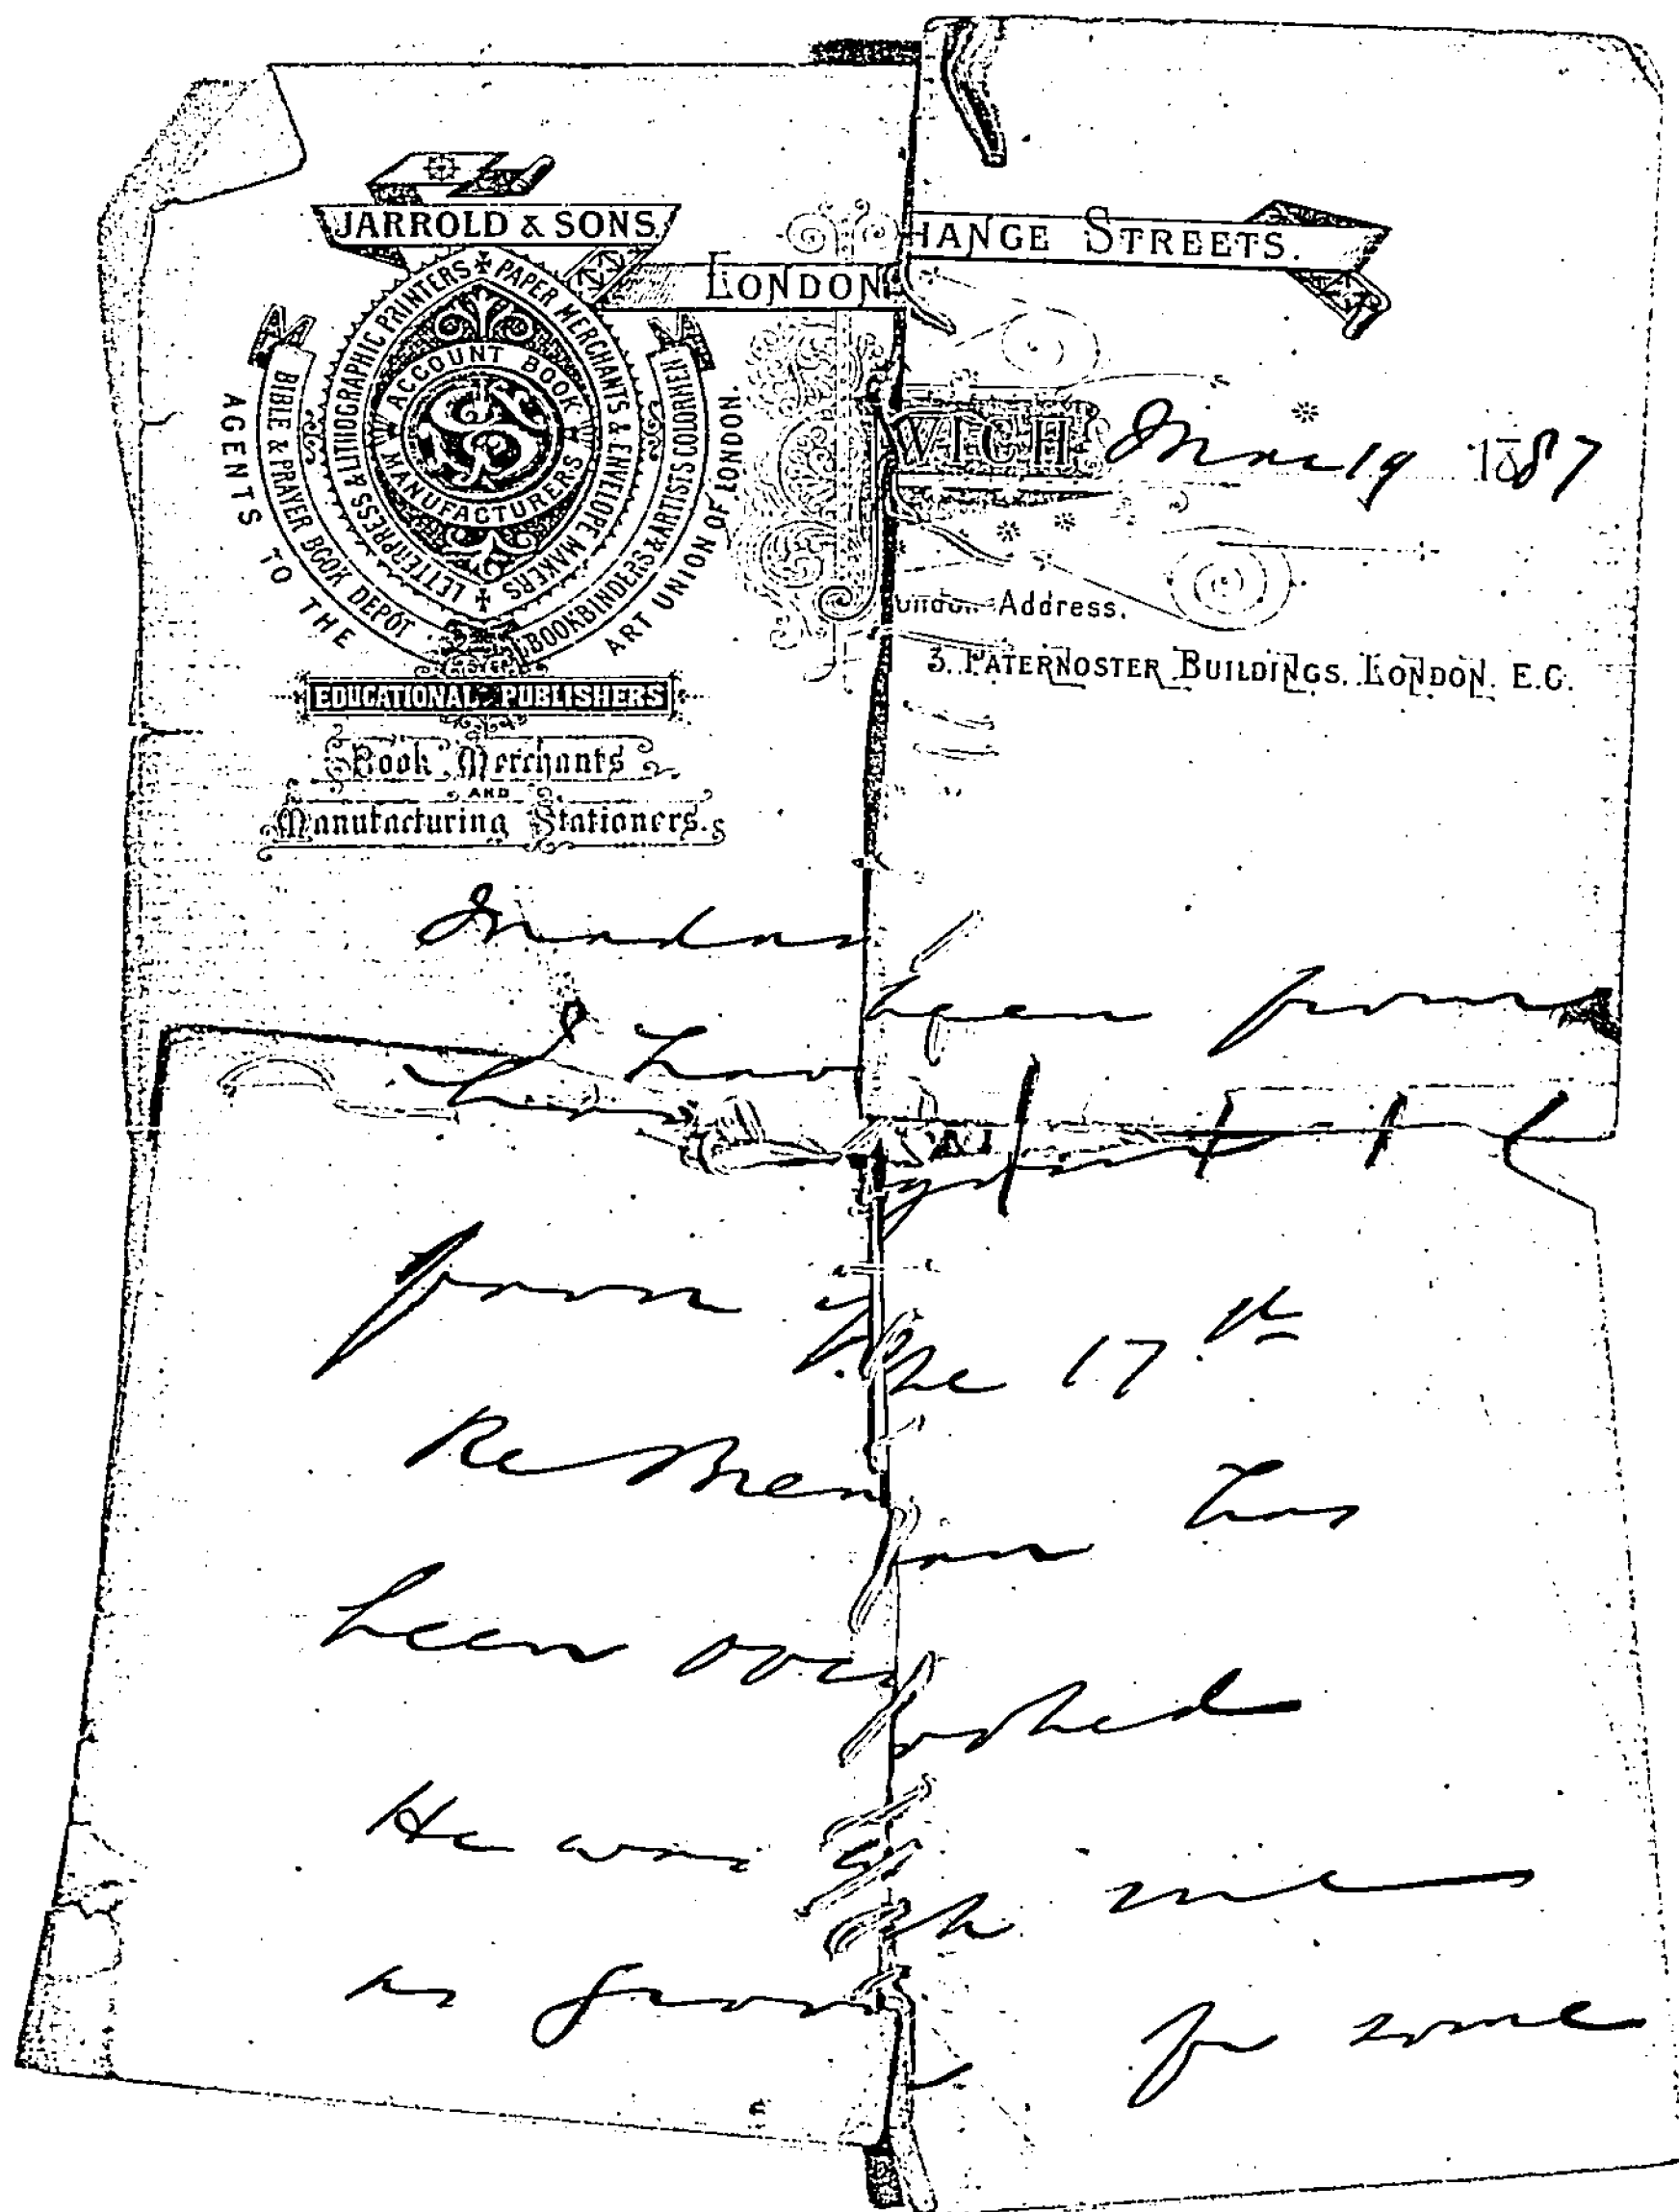 JARROLD & SONS
LONDON
HANGE STREETS.
LETTERPRESS & LITHOGRAPHIC PRINTERS
PAPER MERCHANTS & ENVELOPE MAKERS
ACCOUNT BOOK
MANUFACTURERS
BIBLE & PRAYER BOOK DEPÔT
BOOKBINDERS & ARTISTS COLOURMEN
AGENTS TO THE
ART UNION OF LONDON.
EDUCATIONAL PUBLISHERS
Book Merchants
AND
Manufacturing Stationers.
WICH
19 1887
London Address.
3, PATERNOSTER BUILDINGS, LONDON. E.C.
Madam
I have been
from the 17th
Re has
been overlooked
He was with me
as groom for some